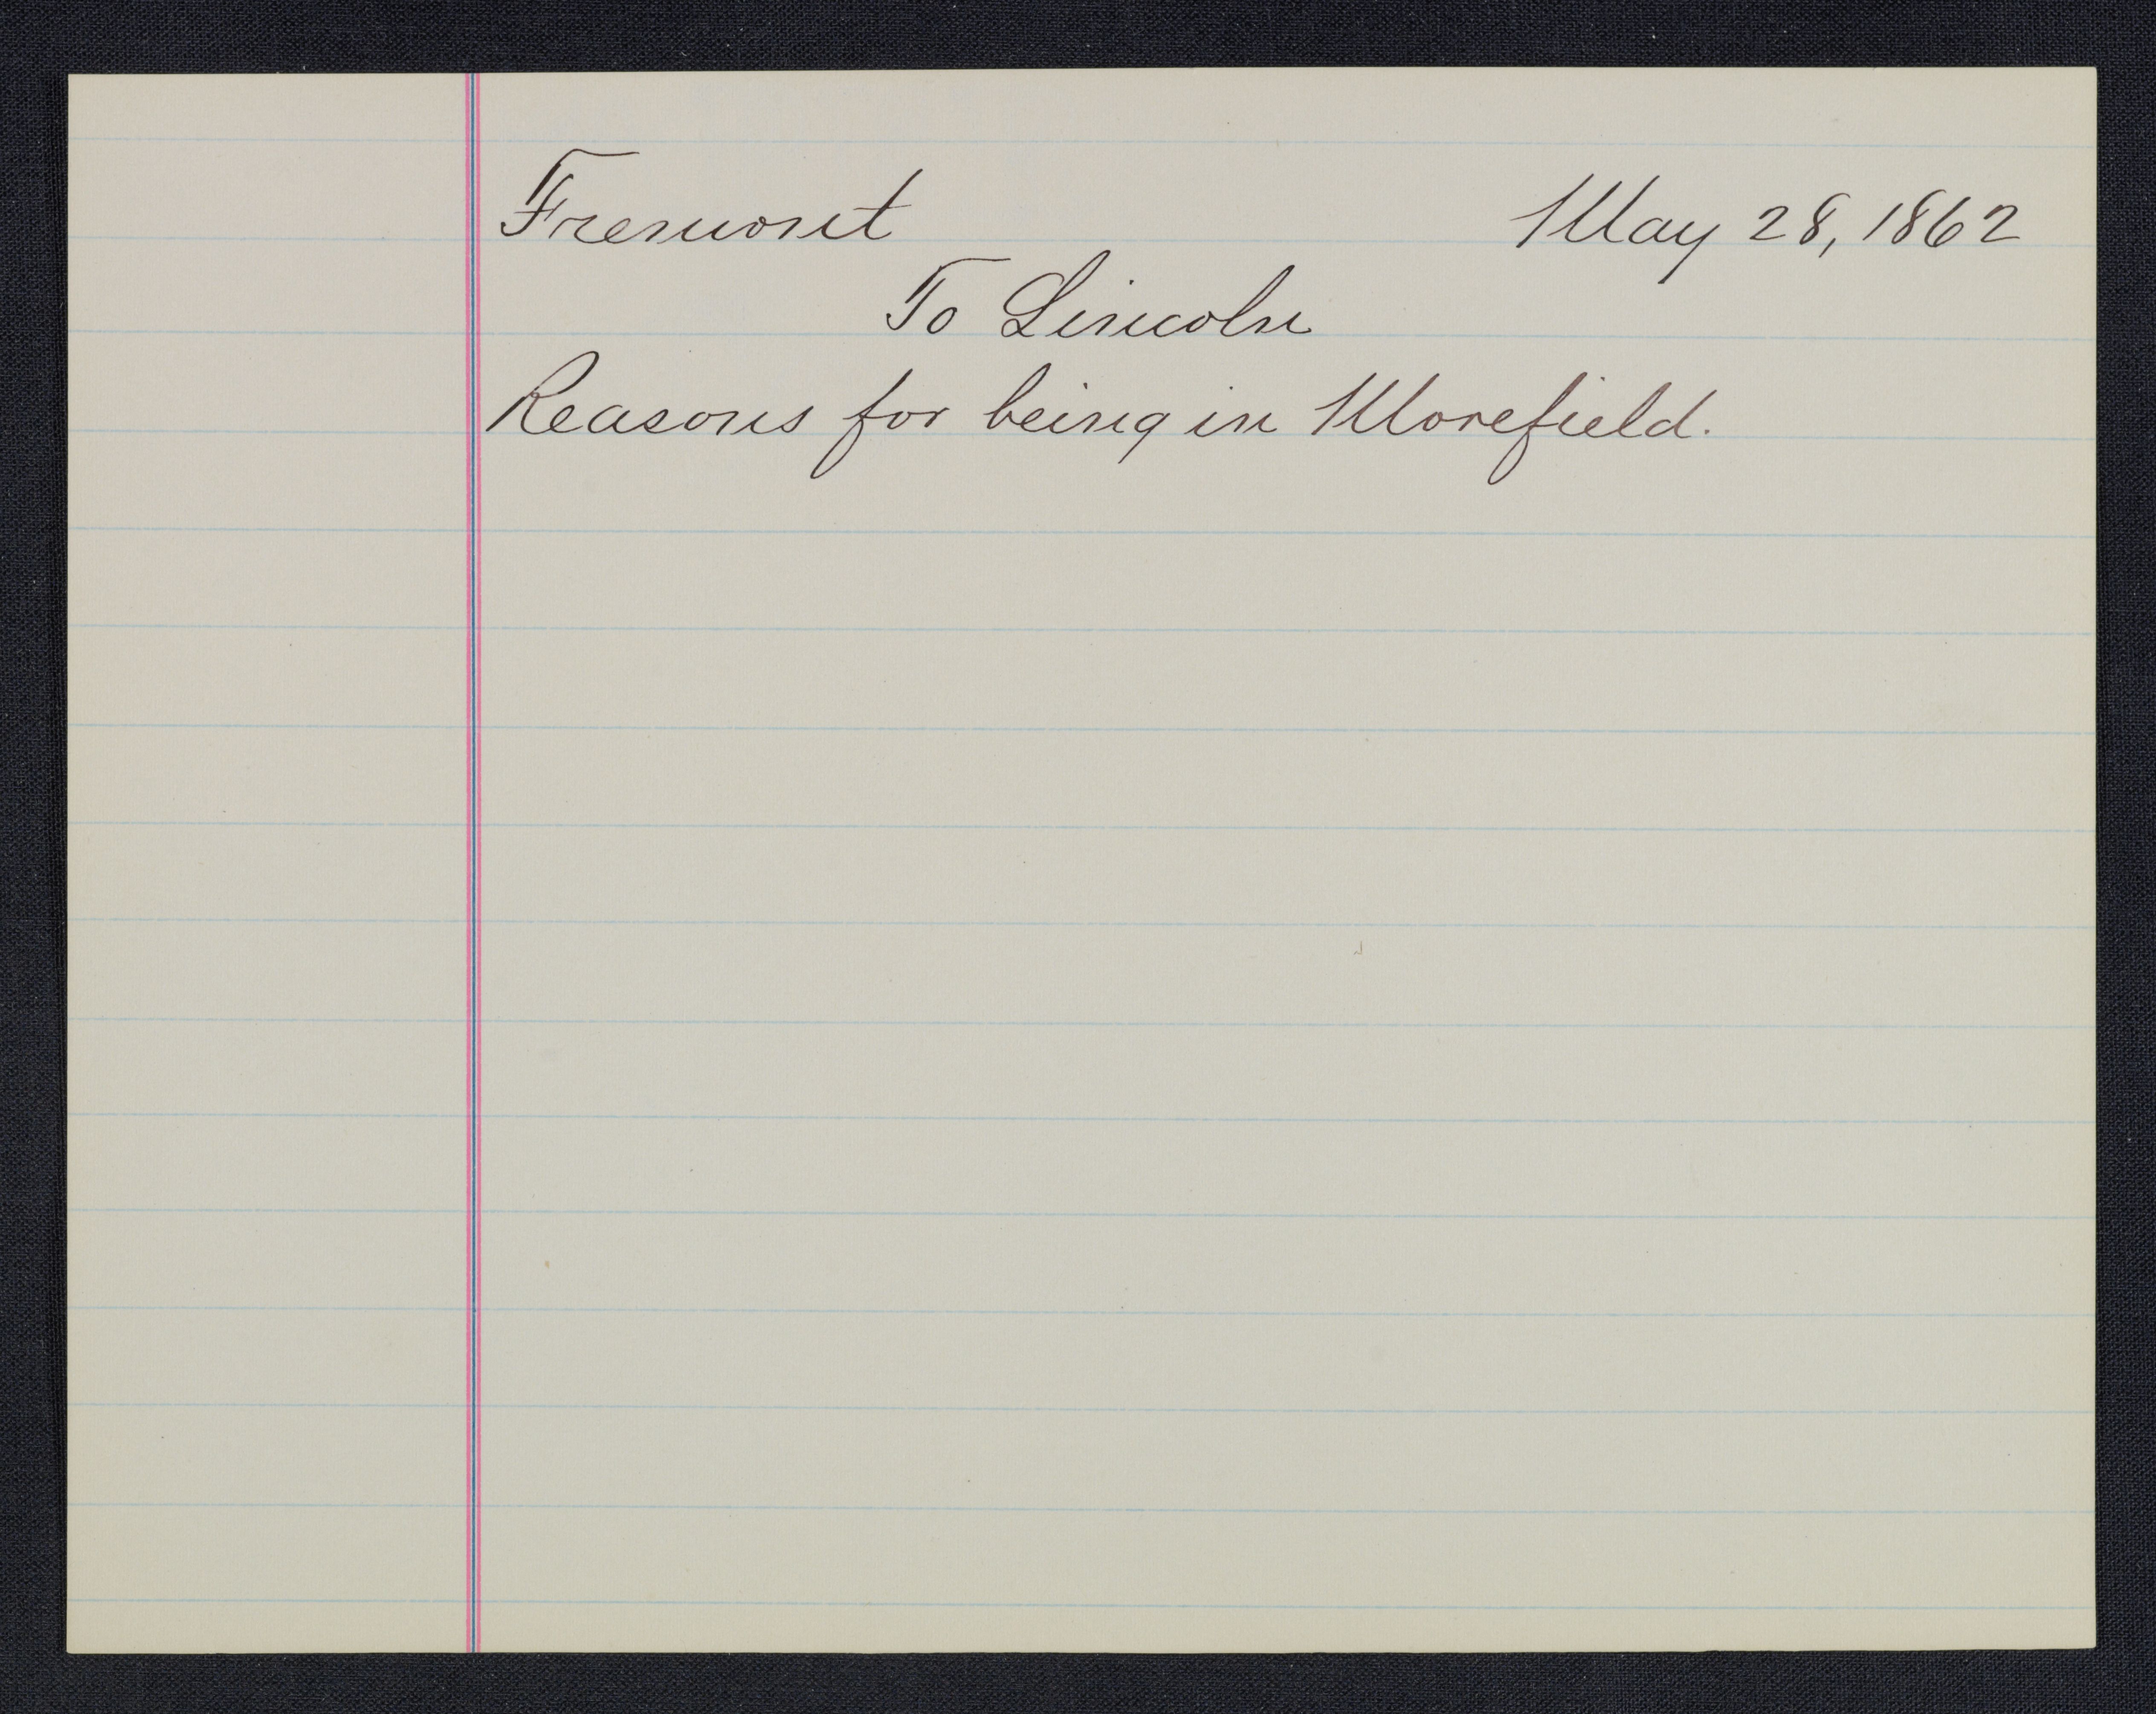 Fremont May 28, 1862
To Lincoln
Reasons for being in Morefield.